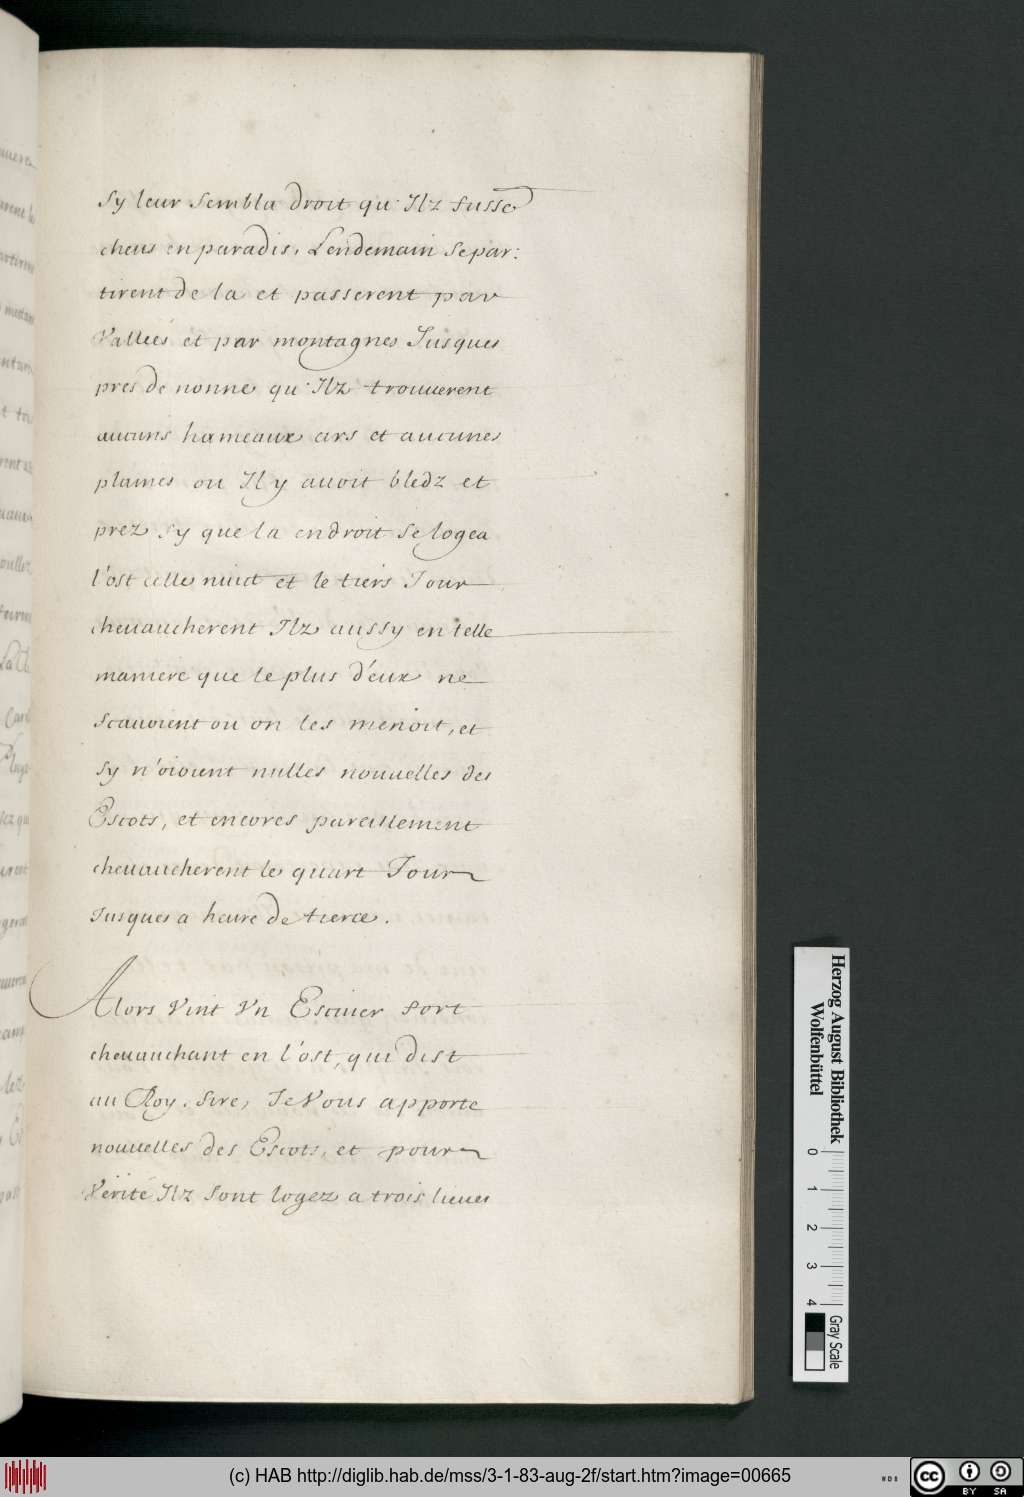 Sy leur sembla droit qu'Ilz fusse
cheus en paradis, Lendemain Se par:
tirent de la et passerent par
Vallées et par montagnes Jusques
pres de nonne qu'Ilz trouuerent
aucuns hameaux ars et aucunes
plaines ou Il y auoit bledz et
prez Sy que la endroit Se logea
l'ost celle nuict et le tiers Jour
cheuaucherent Ilz aussy en telle
maniere que le plus d'eux ne
Scauoient ou on les menoit, et
Sy n'oioient nulles nouuelles des
Escots, et encores pareillement
cheuaucherent le quart Jour
Jusques a heure de tierce.
Alors Vint Vn Escuier fort
cheuauchant en l'ost, qui dist
au Roy. Sire, Je Vous apporte
nouuelles des Escots, et pour
Verité Ilz Sont logez a trois lieues
Herzog August Bibliothek
Wolfenbüttel
0 1 2 3 4
Gray Scale
(c) HAB http://diglib.hab.de/mss/3-1-83-aug-2f/start.htm?image=00665
WDB
cc BY SA